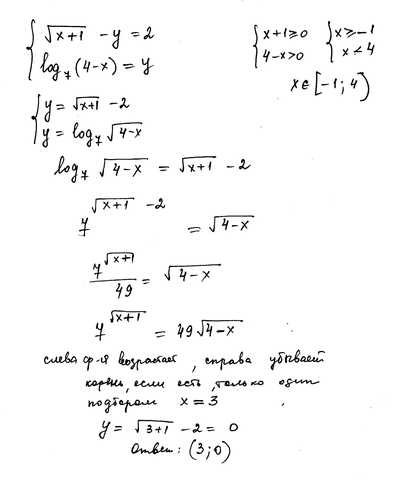 √(x+1) - y = 2
log₇(4-x) = y
x+1≥0
4-x>0
x≥-1
x<4
x∈[-1; 4)
y = √(x+1) - 2
y = log₇ √(4-x)
log₇ √(4-x) = √(x+1) - 2
7^(√(x+1) - 2) = √(4-x)
7^(√(x+1))/49 = √(4-x)
7^(√(x+1)) = 49√(4-x)
слева ф-я возрастает, справа убывает
корень, если есть, только один
подбором x = 3
y = √(3+1) - 2 = 0
Ответ: (3; 0)